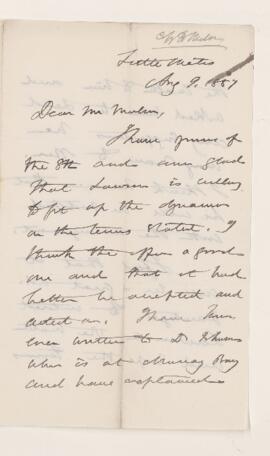 Little Metis
Aug 9. 1887
Dear Mr
I have yours of
the 8th and am glad
that Lawson is willing
to fit up the dynamo
on the terms stated. I
think the offer a good
one and that it had
better be accepted and
acted on. I have
even written to Dr
who is at Murray Bay
and have explained